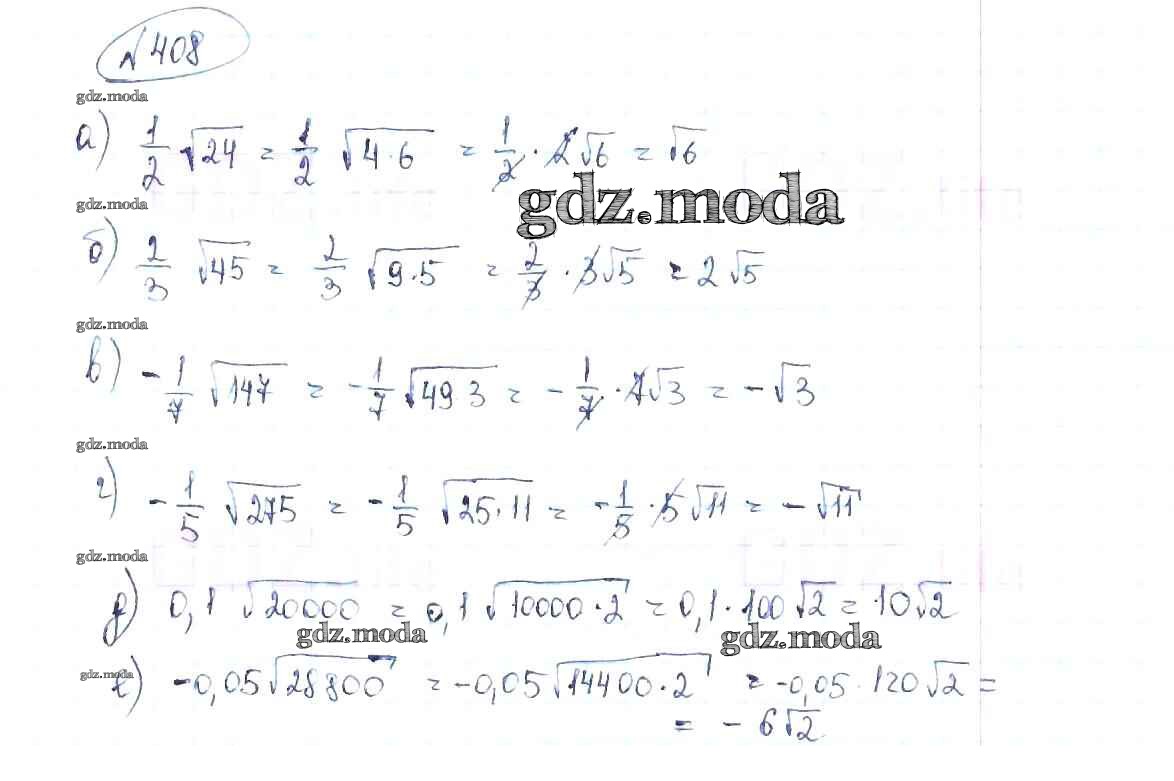 № 408
gdz.moda
а) 1/2 √24 = 1/2 √4·6 = 1/2 · 2√6 = √6
gdz.moda
gdz.moda
б) 2/3 √45 = 2/3 √9·5 = 2/3 · 3√5 = 2√5
gdz.moda
в) -1/7 √147 = -1/7 √49 3 = -1/7 · 7√3 = -√3
gdz.moda
г) -1/5 √275 = -1/5 √25·11 = -1/5 · 5√11 = -√11
gdz.moda
д) 0,1 √20000 = 0,1 √10000·2 = 0,1·100√2 = 10√2
gdz.moda
gdz.moda
gdz.moda
е) -0,05√28800 = -0,05√14400·2 = -0,05·120√2 =
= -6√2